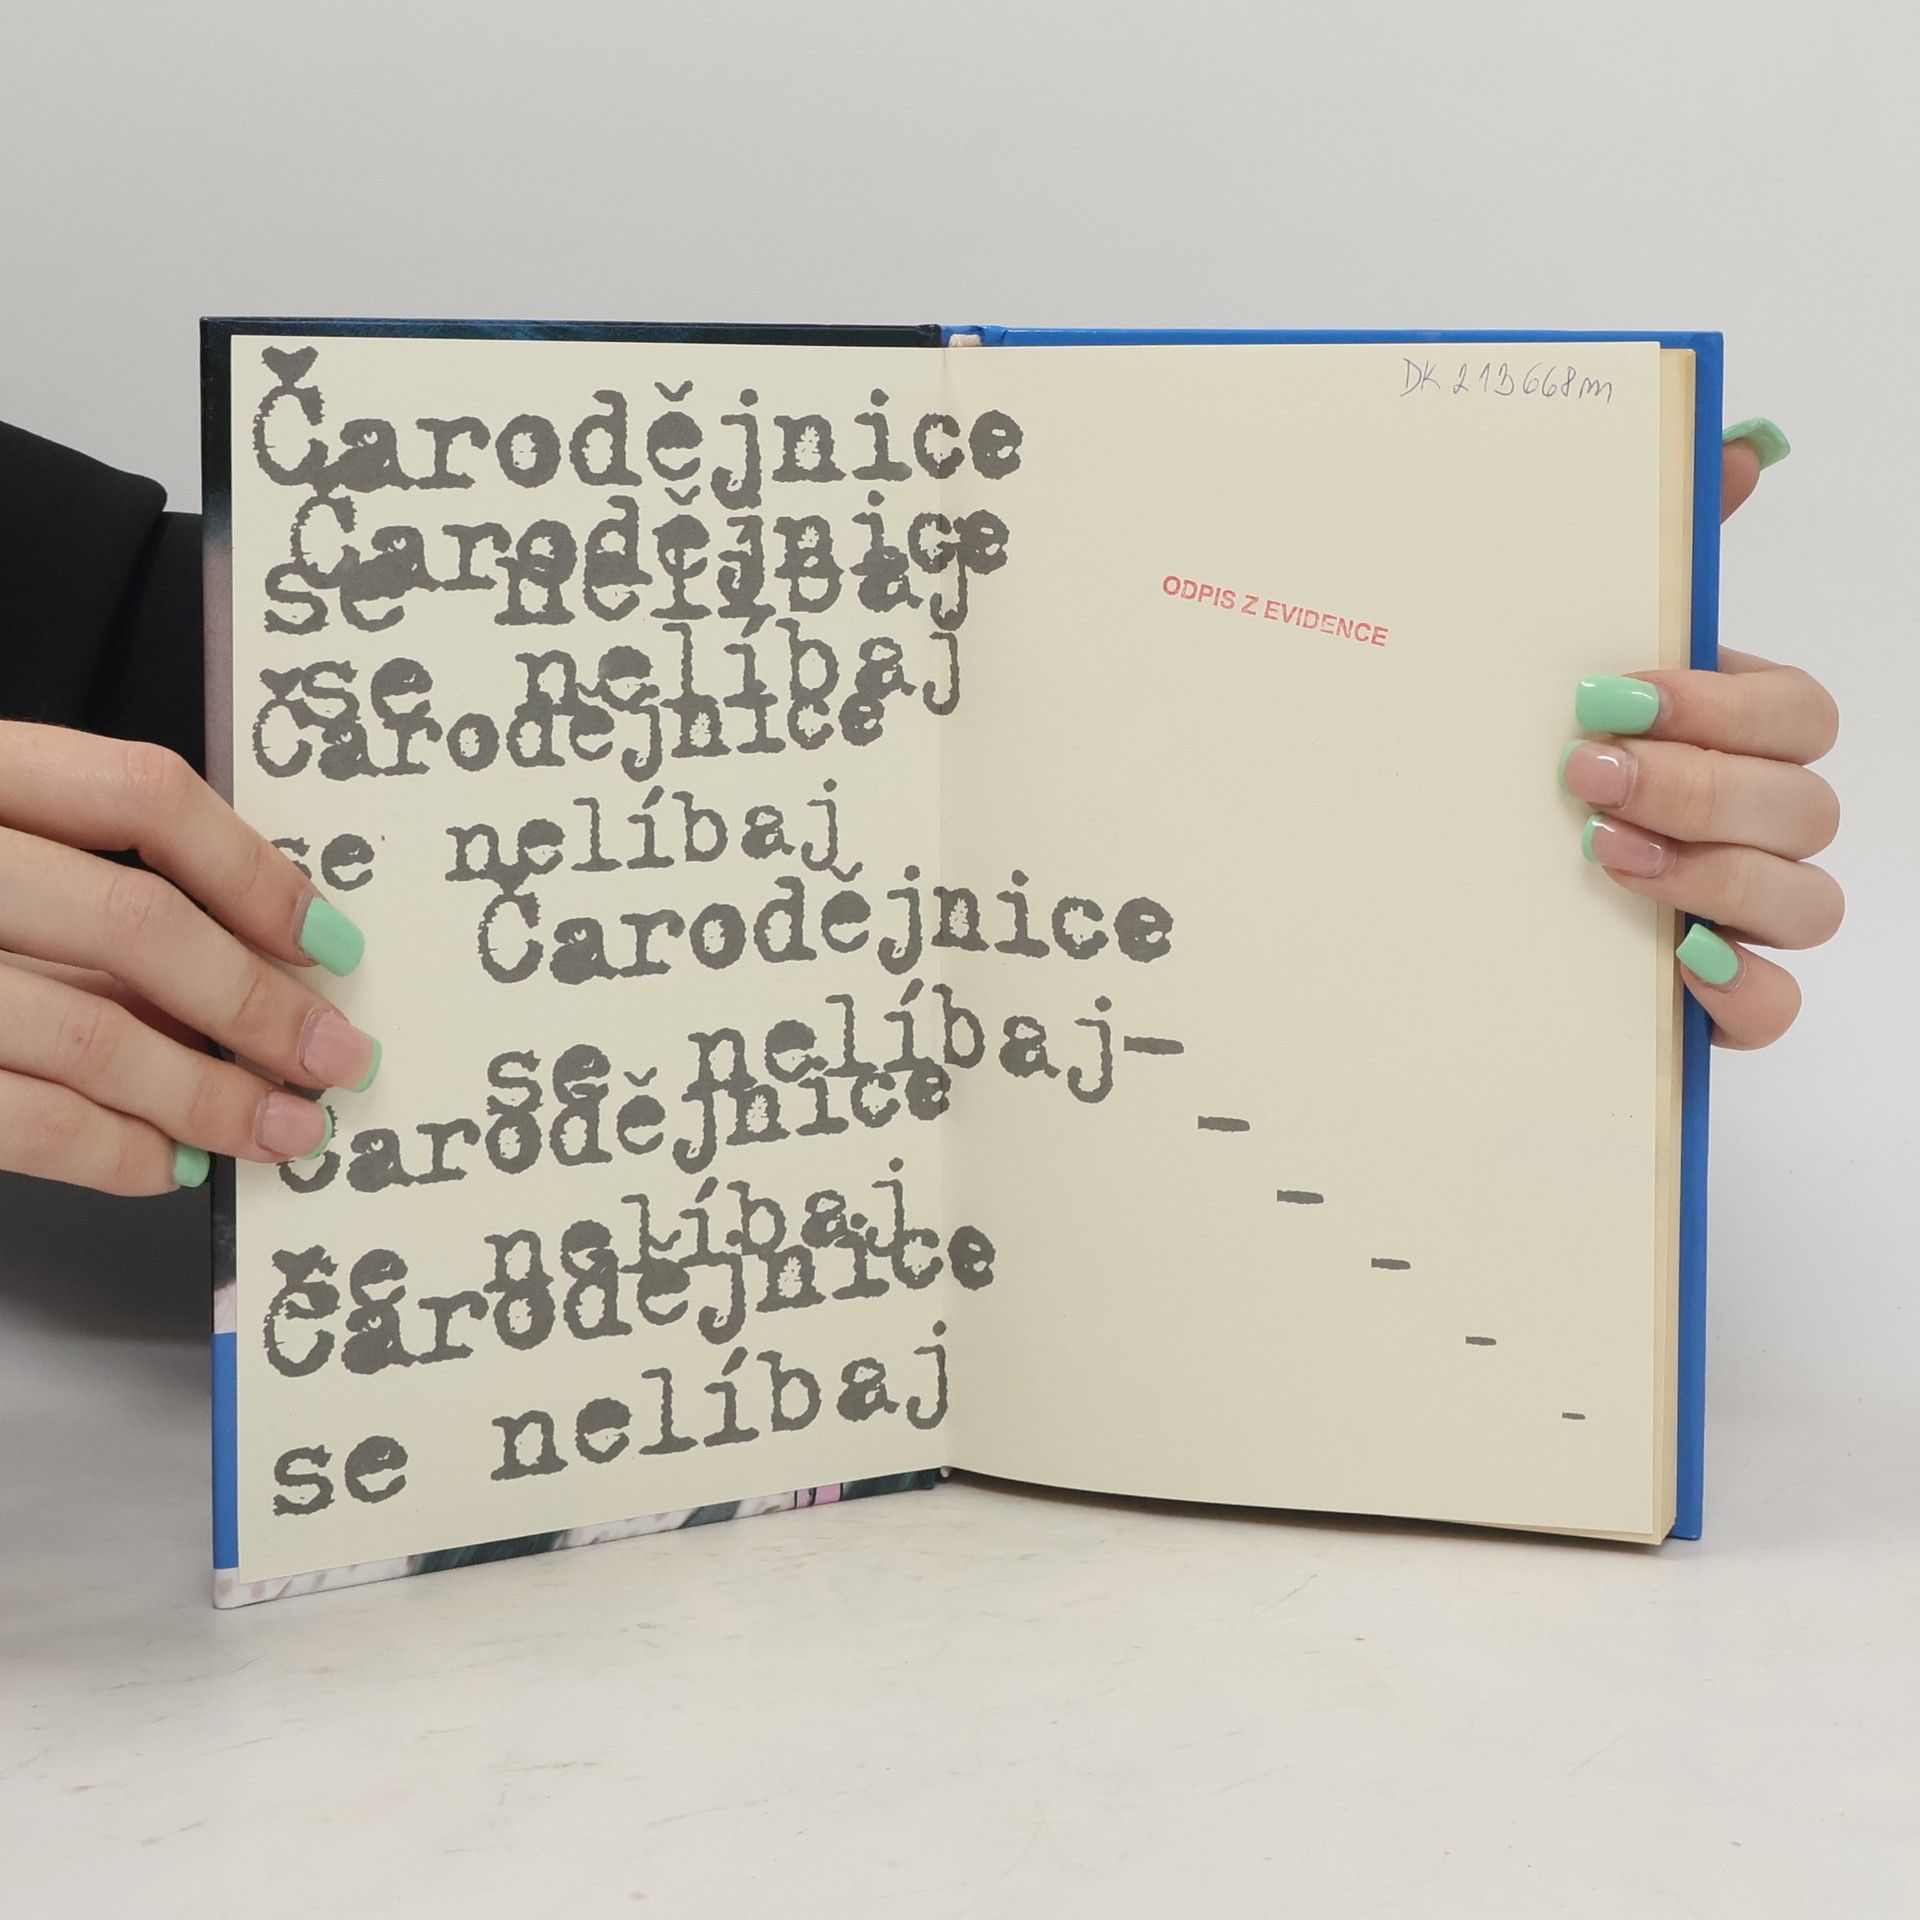 Čarodějnice
Čarodějnice
se nelíbaj
se nelíbaj
Čarodějnice
se nelíbaj
Čarodějnice
se nelíbaj—
—
—
—
—
—
Čarodějnice
se nelíbaj
Čarodějnice
se nelíbaj
DK 213668m
ODPIS Z EVIDENCE